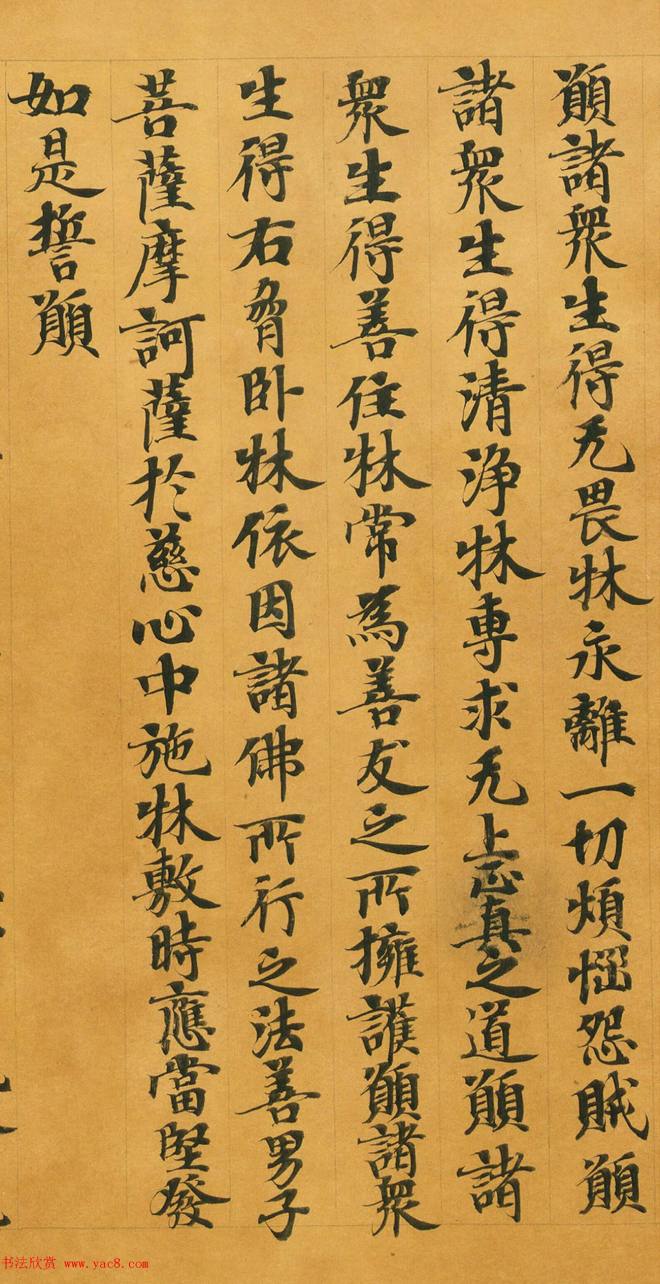 願諸衆生得无畏牀永離一切煩惱怨賊願
諸衆生得清淨牀専求无上正真之道願諸
衆生得善住牀常為善友之所擁護願諸衆
生得右脅卧牀依因諸佛所行之法善男子
菩薩摩訶薩於慈心中施牀敷時應當堅發
如是誓願
书法欣赏 www.yac8.com